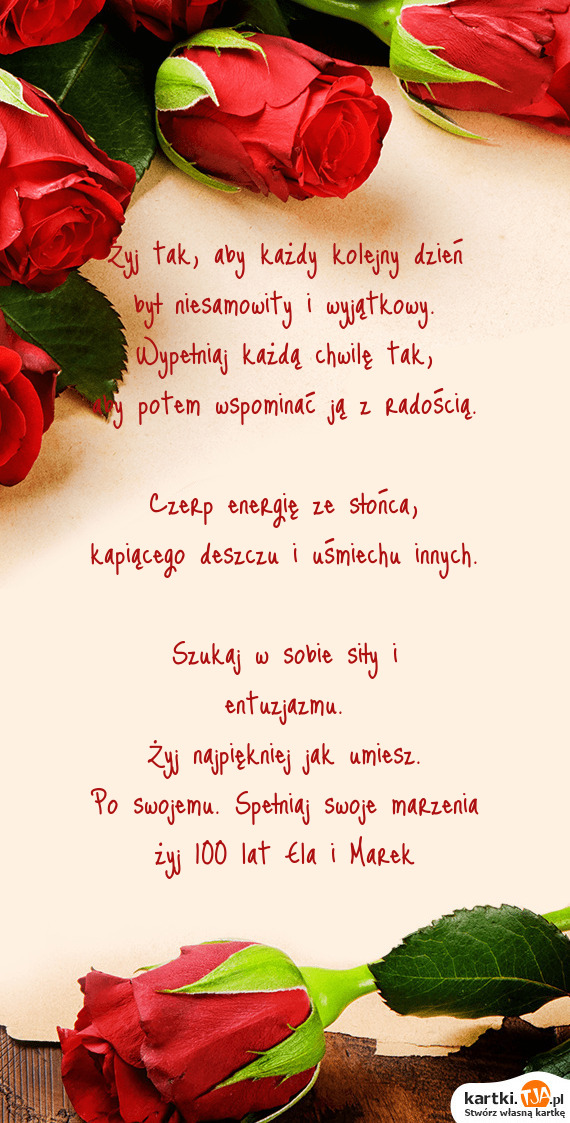 Żyj tak, aby każdy kolejny dzień
był niesamowity i wyjątkowy.
Wypełniaj każdą chwilę tak,
aby potem wspominać ją z radością.
Czerp energię ze słońca,
kapiącego deszczu i uśmiechu innych.
Szukaj w sobie siły i
entuzjazmu.
Żyj najpiękniej jak umiesz.
Po swojemu. Spełniaj swoje marzenia
żyj 100 lat Ela i Marek
kartki.TJA.pl
Stwórz własną kartkę